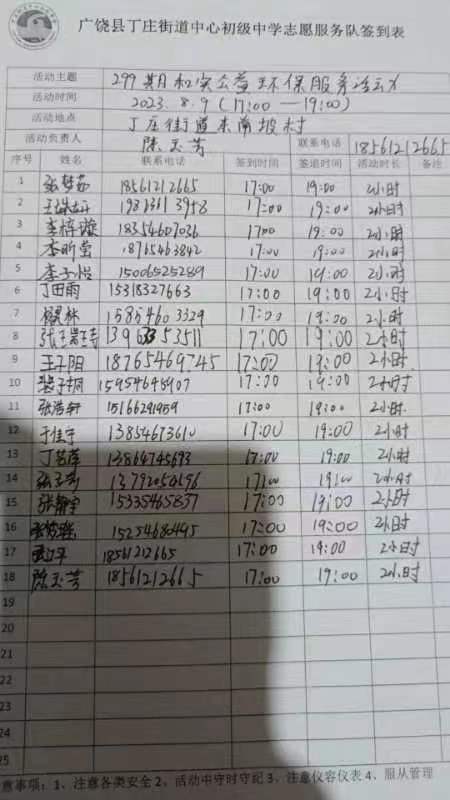 广饶县丁庄街道中心初级中学志愿服务队签到表
活动主题 299期和实公益环保服务活动
活动时间 2023.8.9(17:00—19:00)
活动地点 丁庄街道东南坡村
活动负责人 陈玉芳 联系电话 18561212665
序号 姓名 联系电话 签到时间 签退时间 活动时长 备注
1 张梦茹 18561212665 17:00 19:00 2小时
2 17:00 19:00 2小时
3 李梓璇 18354607036 17:00 19:00 2小时
4 李昕莹 18765463842 17:00 19:00 2小时
5 李子怡 15006525289 17:00 19:00 2小时
6 丁田雨 15318327663 17:00 19:00 2小时
7 15854603329 17:00 19:00 2小时
8 17:00 19:00 2小时
9 王子阳 18765469745 17:00 19:00 2小时
10 15954645907 17:00 19:00 2小时
11 张浩轩 15166291959 17:00 19:00 2小时
12 于佳宁 13854673610 17:00 19:00 2小时
13 丁茗萍 13864745673 17:00 19:00 2小时
14 17:00 19:00 2小时
15 张静宜 15335465837 17:00 19:00 2小时
16 15254680495 17:00 19:00 2小时
17 18561212665 17:00 19:00 2小时
18 陈玉芳 18561212665 17:00 19:00 2小时
19
20
21
22
23
24
25
意事项：1、注意各类安全 2、活动中守时守纪 3、注意仪容仪表 4、服从管理